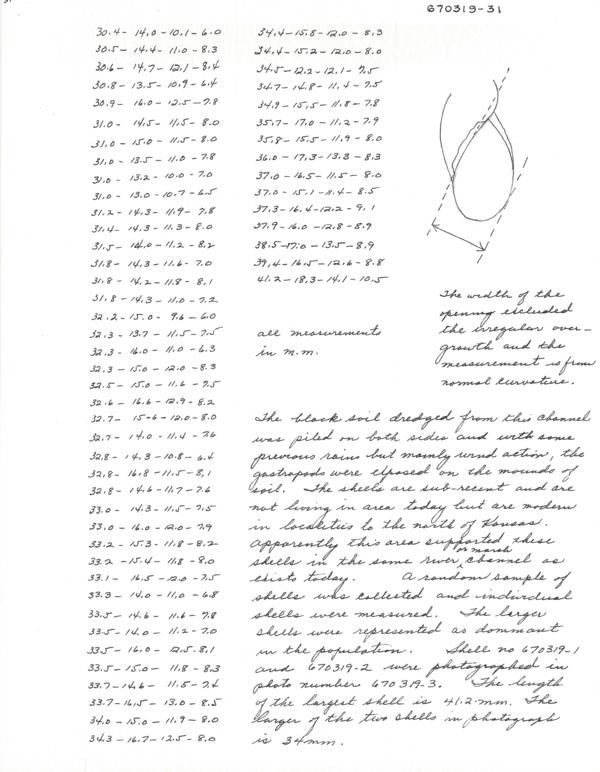 670319-31
30.4 - 14.0 - 10.1 - 6.0
30.5 - 14.4 - 11.0 - 8.3
30.6 - 14.7 - 12.1 - 8.4
30.8 - 13.5 - 10.9 - 6.4
30.9 - 16.0 - 12.5 - 7.8
31.0 - 14.5 - 11.5 - 8.0
31.0 - 15.0 - 11.5 - 8.0
31.0 - 13.5 - 11.0 - 7.8
31.0 - 13.2 - 10.0 - 7.0
31.0 - 13.0 - 10.7 - 6.5
31.2 - 14.3 - 11.9 - 7.8
31.4 - 14.3 - 11.3 - 8.0
31.5 - 14.0 - 11.2 - 8.2
31.8 - 14.3 - 11.6 - 7.0
31.8 - 14.2 - 11.8 - 8.1
31.8 - 14.3 - 11.0 - 7.2
32.2 - 15.0 - 9.6 - 6.0
32.3 - 13.7 - 11.5 - 7.5
32.3 - 16.0 - 11.0 - 6.3
32.3 - 15.0 - 12.0 - 8.3
32.5 - 15.0 - 11.6 - 7.5
32.6 - 16.6 - 12.9 - 8.2
32.7 - 15-6 - 12.0 - 8.0
32.7 - 14.0 - 11.4 - 7.6
32.8 - 14.3 - 10.8 - 6.4
32.8 - 16.8 - 11.5 - 8.1
32.8 - 14.6 - 11.7 - 7.6
33.0 - 14.3 - 11.5 - 7.5
33.0 - 16.0 - 12.0 - 7.9
33.2 - 15.3 - 11.8 - 8.2
33.2 - 15.4 - 11.8 - 8.0
33.1 - 16.5 - 12.0 - 7.5
33.3 - 14.0 - 11.0 - 6.8
33.5 - 14.6 - 11.6 - 7.8
33.5 - 14.0 - 11.2 - 7.0
33.5 - 16.0 - 12.5 - 8.1
33.5 - 15.0 - 11.8 - 8.3
33.7 - 14.6 - 11.5 - 7.4
33.7 - 16.5 - 13.0 - 8.5
34.0 - 15.0 - 11.9 - 8.0
34.3 - 16.7 - 12.5 - 8.0
34.4 - 15.8 - 12.0 - 8.3
34.4 - 15.2 - 12.0 - 8.0
34.5 - 12.2 - 12.1 - 7.5
34.7 - 14.8 - 11.4 - 7.5
34.9 - 15.5 - 11.8 - 7.8
35.7 - 17.0 - 11.2 - 7.9
35.8 - 15.5 - 11.9 - 8.0
36.0 - 17.3 - 13.3 - 8.3
37.0 - 16.5 - 11.5 - 8.0
37.0 - 15.1 - 11.4 - 8.5
37.3 - 16.4 - 12.2 - 9.1
37.9 - 16.0 - 12.8 - 8.9
38.5 - 17.0 - 13.5 - 8.9
39.4 - 16.5 - 12.6 - 8.8
41.2 - 18.3 - 14.1 - 10.5
all measurements
in m.m.
The width of the
opening excluded
the irregular over-
growth and the
measurement is from
normal curvature.
The black soil dredged from this channel
was piled on both sides and with some
previous rains but mainly wind action, the
gastropods were exposed on the mounds of
soil. The shells are sub-recent and are
not living in area today but are modern
in localities to the north of Kansas.
Apparently this area supported these
shells in the same river or marsh channel as
exists today. A random sample of
shells was collected and individual
shells were measured. The larger
shells were represented as dominant
in the population. Shell no 670319-1
and 670319-2 were photographed in
photo number 670319-3. The length
of the largest shell is 41.2 mm. The
larger of the two shells in photograph
is 34mm.